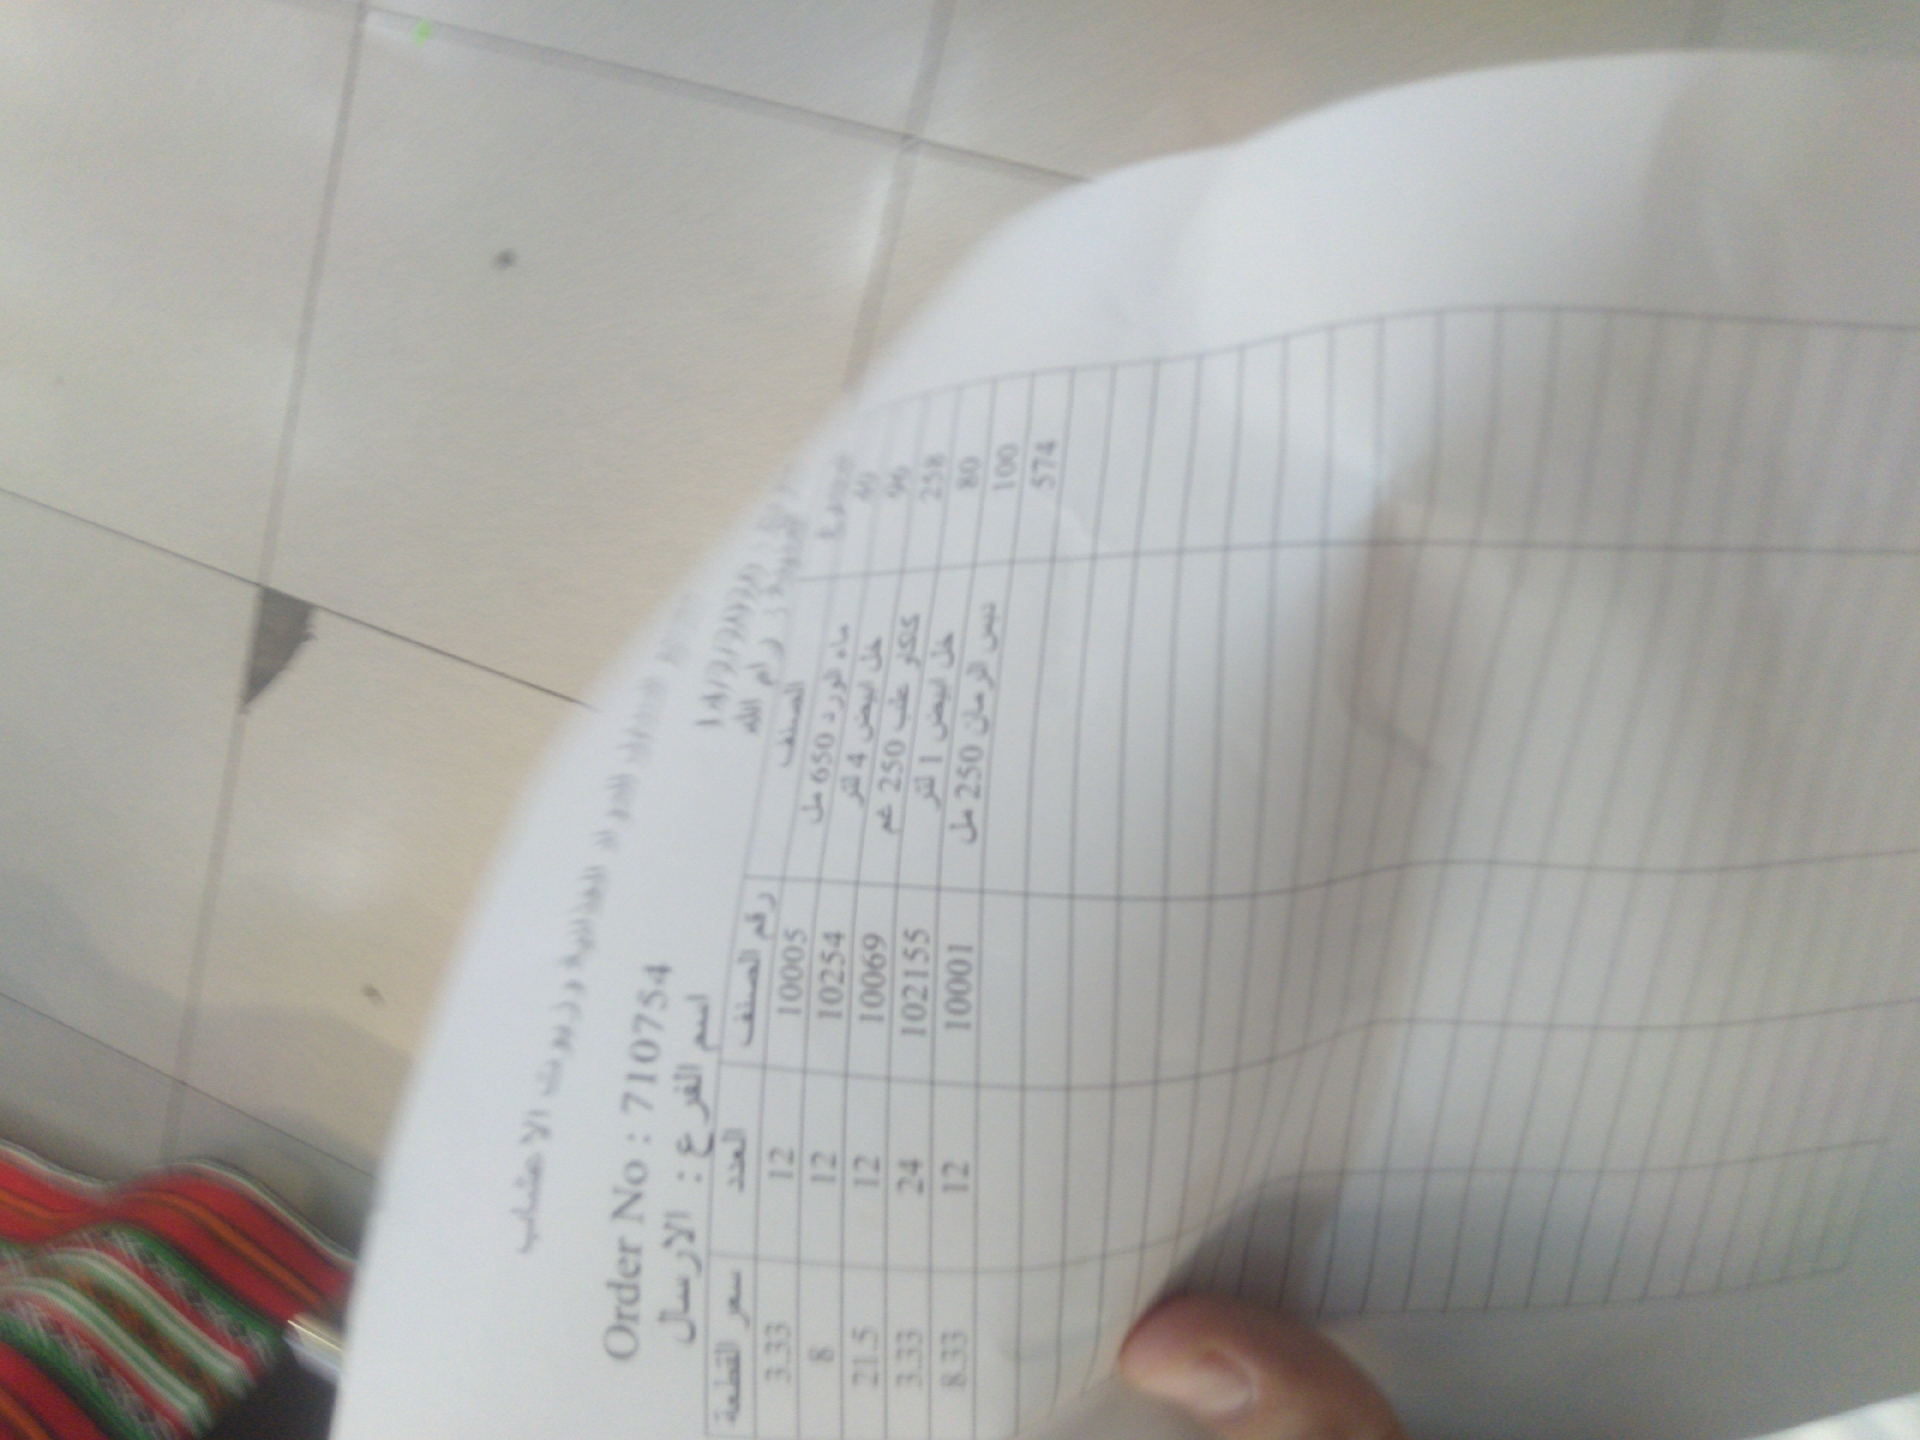 للمواد الغذائية وزيوت الاعشاب
Order No : 7107754
اسم الفرع : الارسال رام الله
سعر القطعة العدد رقم الصنف الصنف
3.33 12 10005 ماء الورد 650 مل
8 12 10254 خل ابيض 4 لتر 96
21.5 12 10069 كاكاو علب 250 غم 258
3.33 24 102155 خل ابيض 1 لتر 80
8.33 12 10001 دبس الرمان 250 مل 100
574